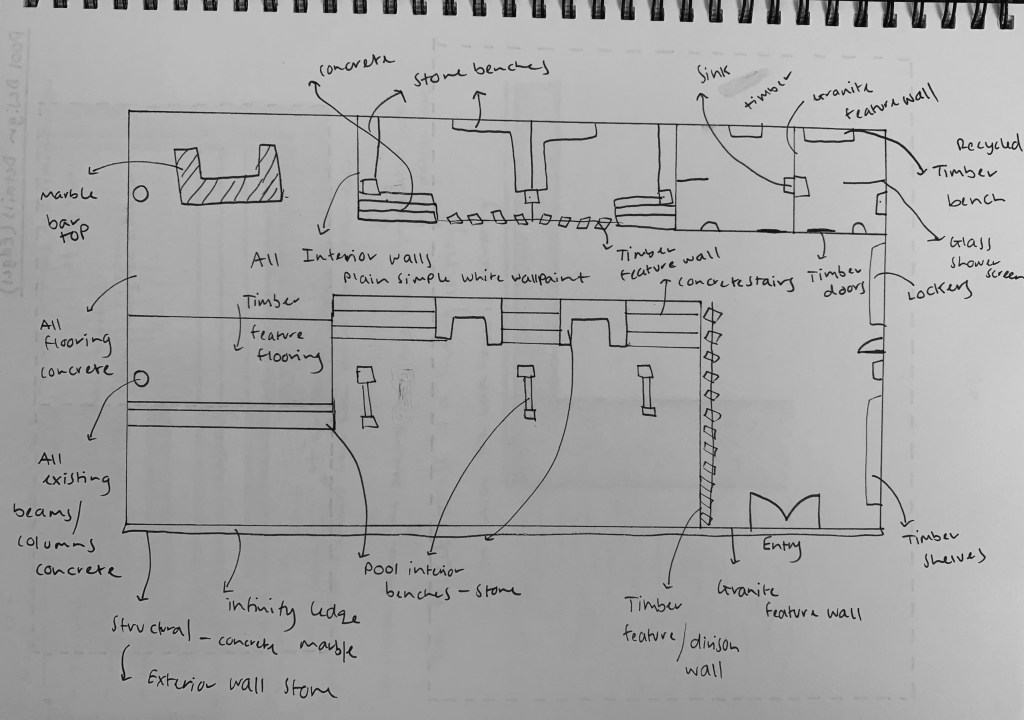 Pool Design Details (Edges)
concrete
Stone benches
Sink
timber
Granite
feature wall
Recycled
Timber
bench
Glass
Shower
screen
Marble
bar
top
All Interior walls
plain simple white wallpaint
Timber
feature wall
concrete stairs
Timber
doors
Lockers
Timber
feature
flooring
All
flooring
concrete
All
existing
beams/
columns
concrete
Pool interior
benches - stone
Entry
Timber
shelves
Granite
feature wall
Timber
feature/divison
wall
infinity ledge
- concrete marble
Structural
Exterior wall stone